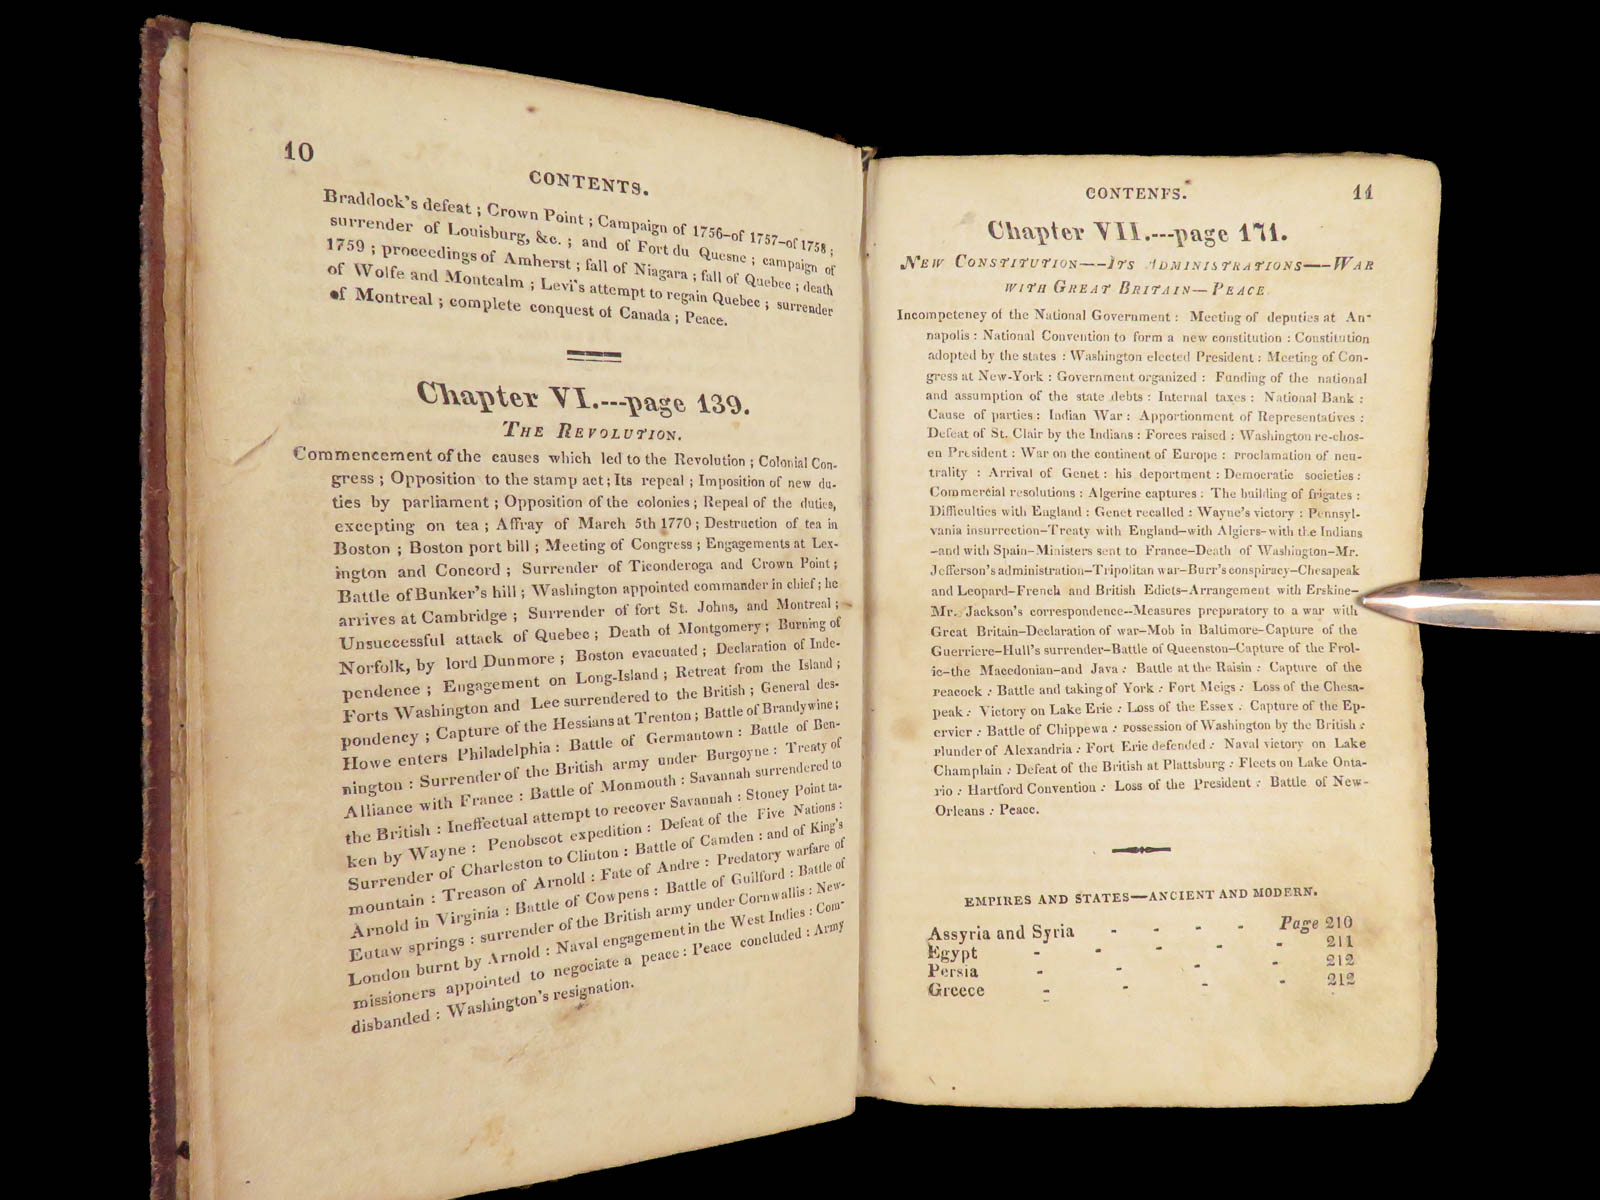 10
CONTENTS.
Braddock's defeat ; Crown Point ; Campaign of 1756–of 1757–of 1758 ;
surrender of Louisburg, &c. ; and of Fort du Quesne ; campaign of
1759 ; proceedings of Amherst ; fall of Niagara ; fall of Quebec ; death
of Wolfe and Montcalm ; Levi's attempt to regain Quebec ; surrender
of Montreal ; complete conquest of Canada ; Peace.
Chapter VI.---page 139.
THE REVOLUTION.
Commencement of the causes which led to the Revolution ; Colonial Con-
gress ; Opposition to the stamp act ; Its repeal ; Imposition of new du-
ties by parliament ; Opposition of the colonies ; Repeal of the duties,
excepting on tea ; Affray of March 5th 1770 ; Destruction of tea in
Boston ; Boston port bill ; Meeting of Congress ; Engagements at Lex-
ington and Concord ; Surrender of Ticonderoga and Crown Point ;
Battle of Bunker's hill ; Washington appointed commander in chief ; he
arrives at Cambridge ; Surrender of fort St. Johns, and Montreal ;
Unsuccessful attack of Quebec ; Death of Montgomery ; Burning of
Norfolk, by lord Dunmore ; Boston evacuated ; Declaration of Inde-
pendence ; Engagement on Long-Island ; Retreat from the Island ;
Forts Washington and Lee surrendered to the British ; General des-
pondency ; Capture of the Hessians at Trenton ; Battle of Brandywine ;
Howe enters Philadelphia : Battle of Germantown : Battle of Ben-
nington : Surrender of the British army under Burgoyne : Treaty of
Alliance with France : Battle of Monmouth : Savannah surrendered to
the British : Ineffectual attempt to recover Savannah : Stoney Point ta-
ken by Wayne : Penobscot expedition : Defeat of the Five Nations :
Surrender of Charleston to Clinton : Battle of Camden : and of King's
mountain : Treason of Arnold : Fate of Andre : Predatory warfare of
Arnold in Virginia : Battle of Cowpens : Battle of Guilford : Battle of
Eutaw springs : surrender of the British army under Cornwallis : New-
London burnt by Arnold : Naval engagement in the West Indies : Com-
missioners appointed to negociate a peace : Peace concluded : Army
disbanded : Washington's resignation.
CONTENFS.
11
Chapter VII.---page 171.
NEW CONSTITUTION——ITS ADMINISTRATIONS——WAR
WITH GREAT BRITAIN—PEACE
Incompetency of the National Government : Meeting of deputies at An-
napolis : National Convention to form a new constitution : Constitution
adopted by the states : Washington elected President : Meeting of Con-
gress at New-York : Government organized : Funding of the national
and assumption of the state debts : Internal taxes : National Bank :
Cause of parties : Indian War : Apportionment of Representatives :
Defeat of St. Clair by the Indians : Forces raised : Washington re-chos-
en President : War on the continent of Europe : proclamation of neu-
trality : Arrival of Genet : his deportment : Democratic societies :
Commercial resolutions : Algerine captures : The building of frigates :
Difficulties with England : Genet recalled : Wayne's victory : Pennsyl-
vania insurrection–Treaty with England–with Algiers–with the Indians
–and with Spain–Ministers sent to France–Death of Washington–Mr.
Jefferson's administration–Tripolitan war–Burr's conspiracy–Chesapeak
and Leopard–French and British Edicts–Arrangement with Erskine–
Mr. Jackson's correspondence--Measures preparatory to a war with
Great Britain–Declaration of war–Mob in Baltimore–Capture of the
Guerriere–Hull's surrender–Battle of Queenston–Capture of the Frol-
ic–the Macedonian–and Java : Battle at the Raisin : Capture of the
Peacock : Battle and taking of York : Fort Meigs : Loss of the Chesa-
peak : Victory on Lake Erie : Loss of the Essex : Capture of the Ep-
ervier : Battle of Chippewa : Possession of Washington by the British :
Plunder of Alexandria : Fort Erie defended : Naval victory on Lake
Champlain : Defeat of the British at Plattsburg : Fleets on Lake Onta-
rio : Hartford Convention : Loss of the President : Battle of New-
Orleans : Peace.
EMPIRES AND STATES—ANCIENT AND MODERN.
Assyria and Syria - - - - Page 210
Egypt - - - - - 211
Persia - - - - 212
Greece - - - - 212